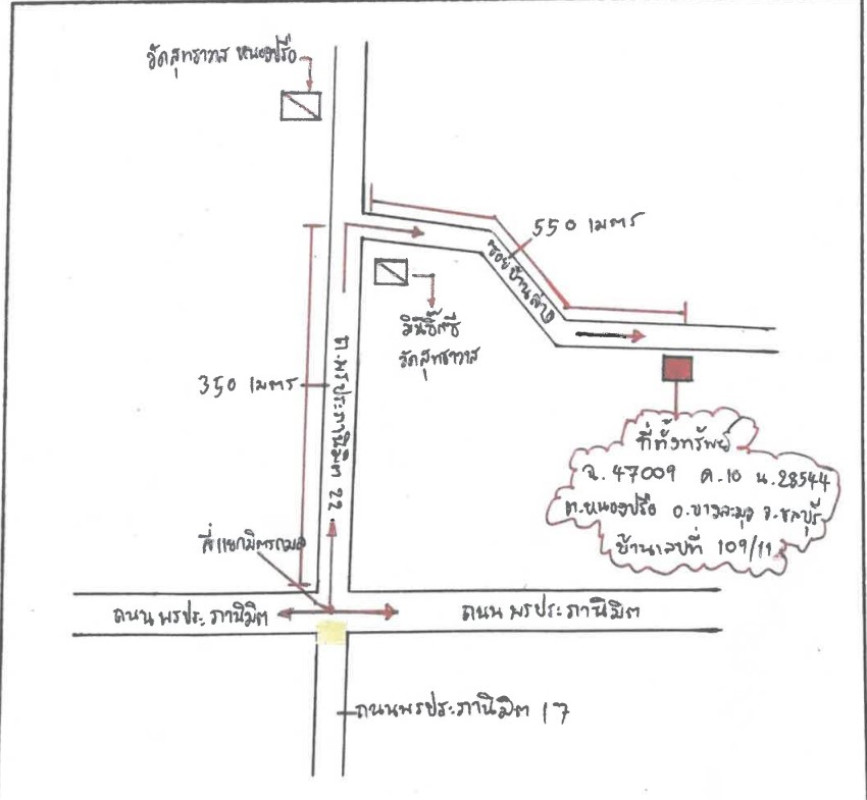 วัดสุทธาวาส หนองปรือ
550 เมตร
ซอยบ้านล่าง
มินิบิ๊กซี
วัดสุทธาวาส
350 เมตร
ถ.พรประภานิมิต 22
ที่ตั้งทรัพย์
ฉ. 47009 ด.10 น.28544
ต.หนองปรือ อ.บางละมุง จ.ชลบุรี
บ้านเลขที่ 109/11
สี่แยกมิตรกมล
ถนน พรประภานิมิต
ถนน พรประภานิมิต
ถนนพรประภานิมิต 17